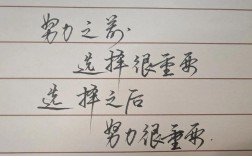 努力之前.
选择很重要
选择之后
努力很重要.